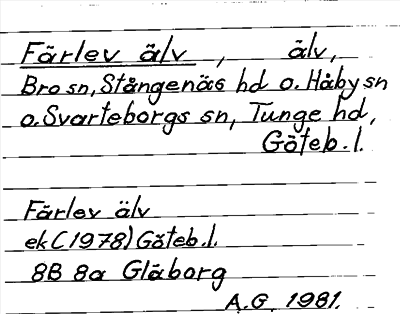 Färlev älv, älv,
Bro sn, Stångenäs hd o. Håby sn
o. Svarteborgs sn, Tunge hd,
Göteb. l.
Färlev älv
ek (1978) Göteb. l.
8B 8a Gläborg
A.G. 1981.